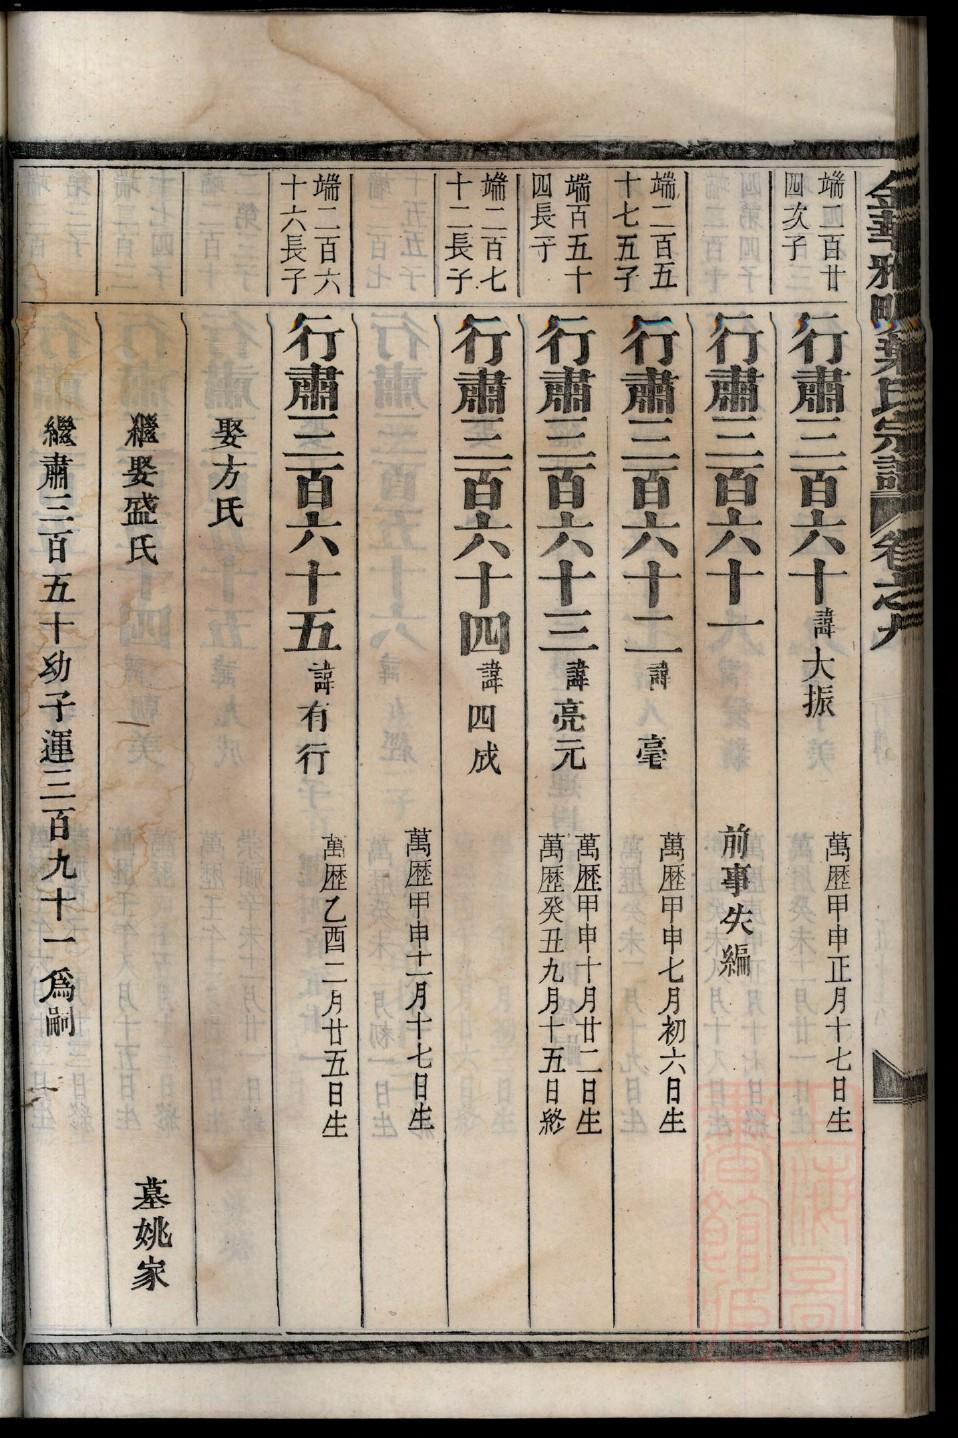 金華雅畈葉氏宗譜 卷之九
端四百廿四次子
行肅三百六十 諱大振 萬歷甲申正月十七日生
行肅三百六十一 前事失編
端二百五十七五子
行肅三百六十二 諱毫 萬歷甲申七月初六日生
端百五十四長子
行肅三百六十三 諱亮元 萬歷甲申十月廿二日生
萬歷癸丑九月十五日終
端二百七十二長子
行肅三百六十四 諱四成
萬歷甲申十二月十七日生
端二百六十六長子
行肅三百六十五 諱有行 萬歷乙酉二月廿五日生
娶方氏
繼娶盛氏 墓姚家
繼肅三百五十幼子運三百九十一爲嗣